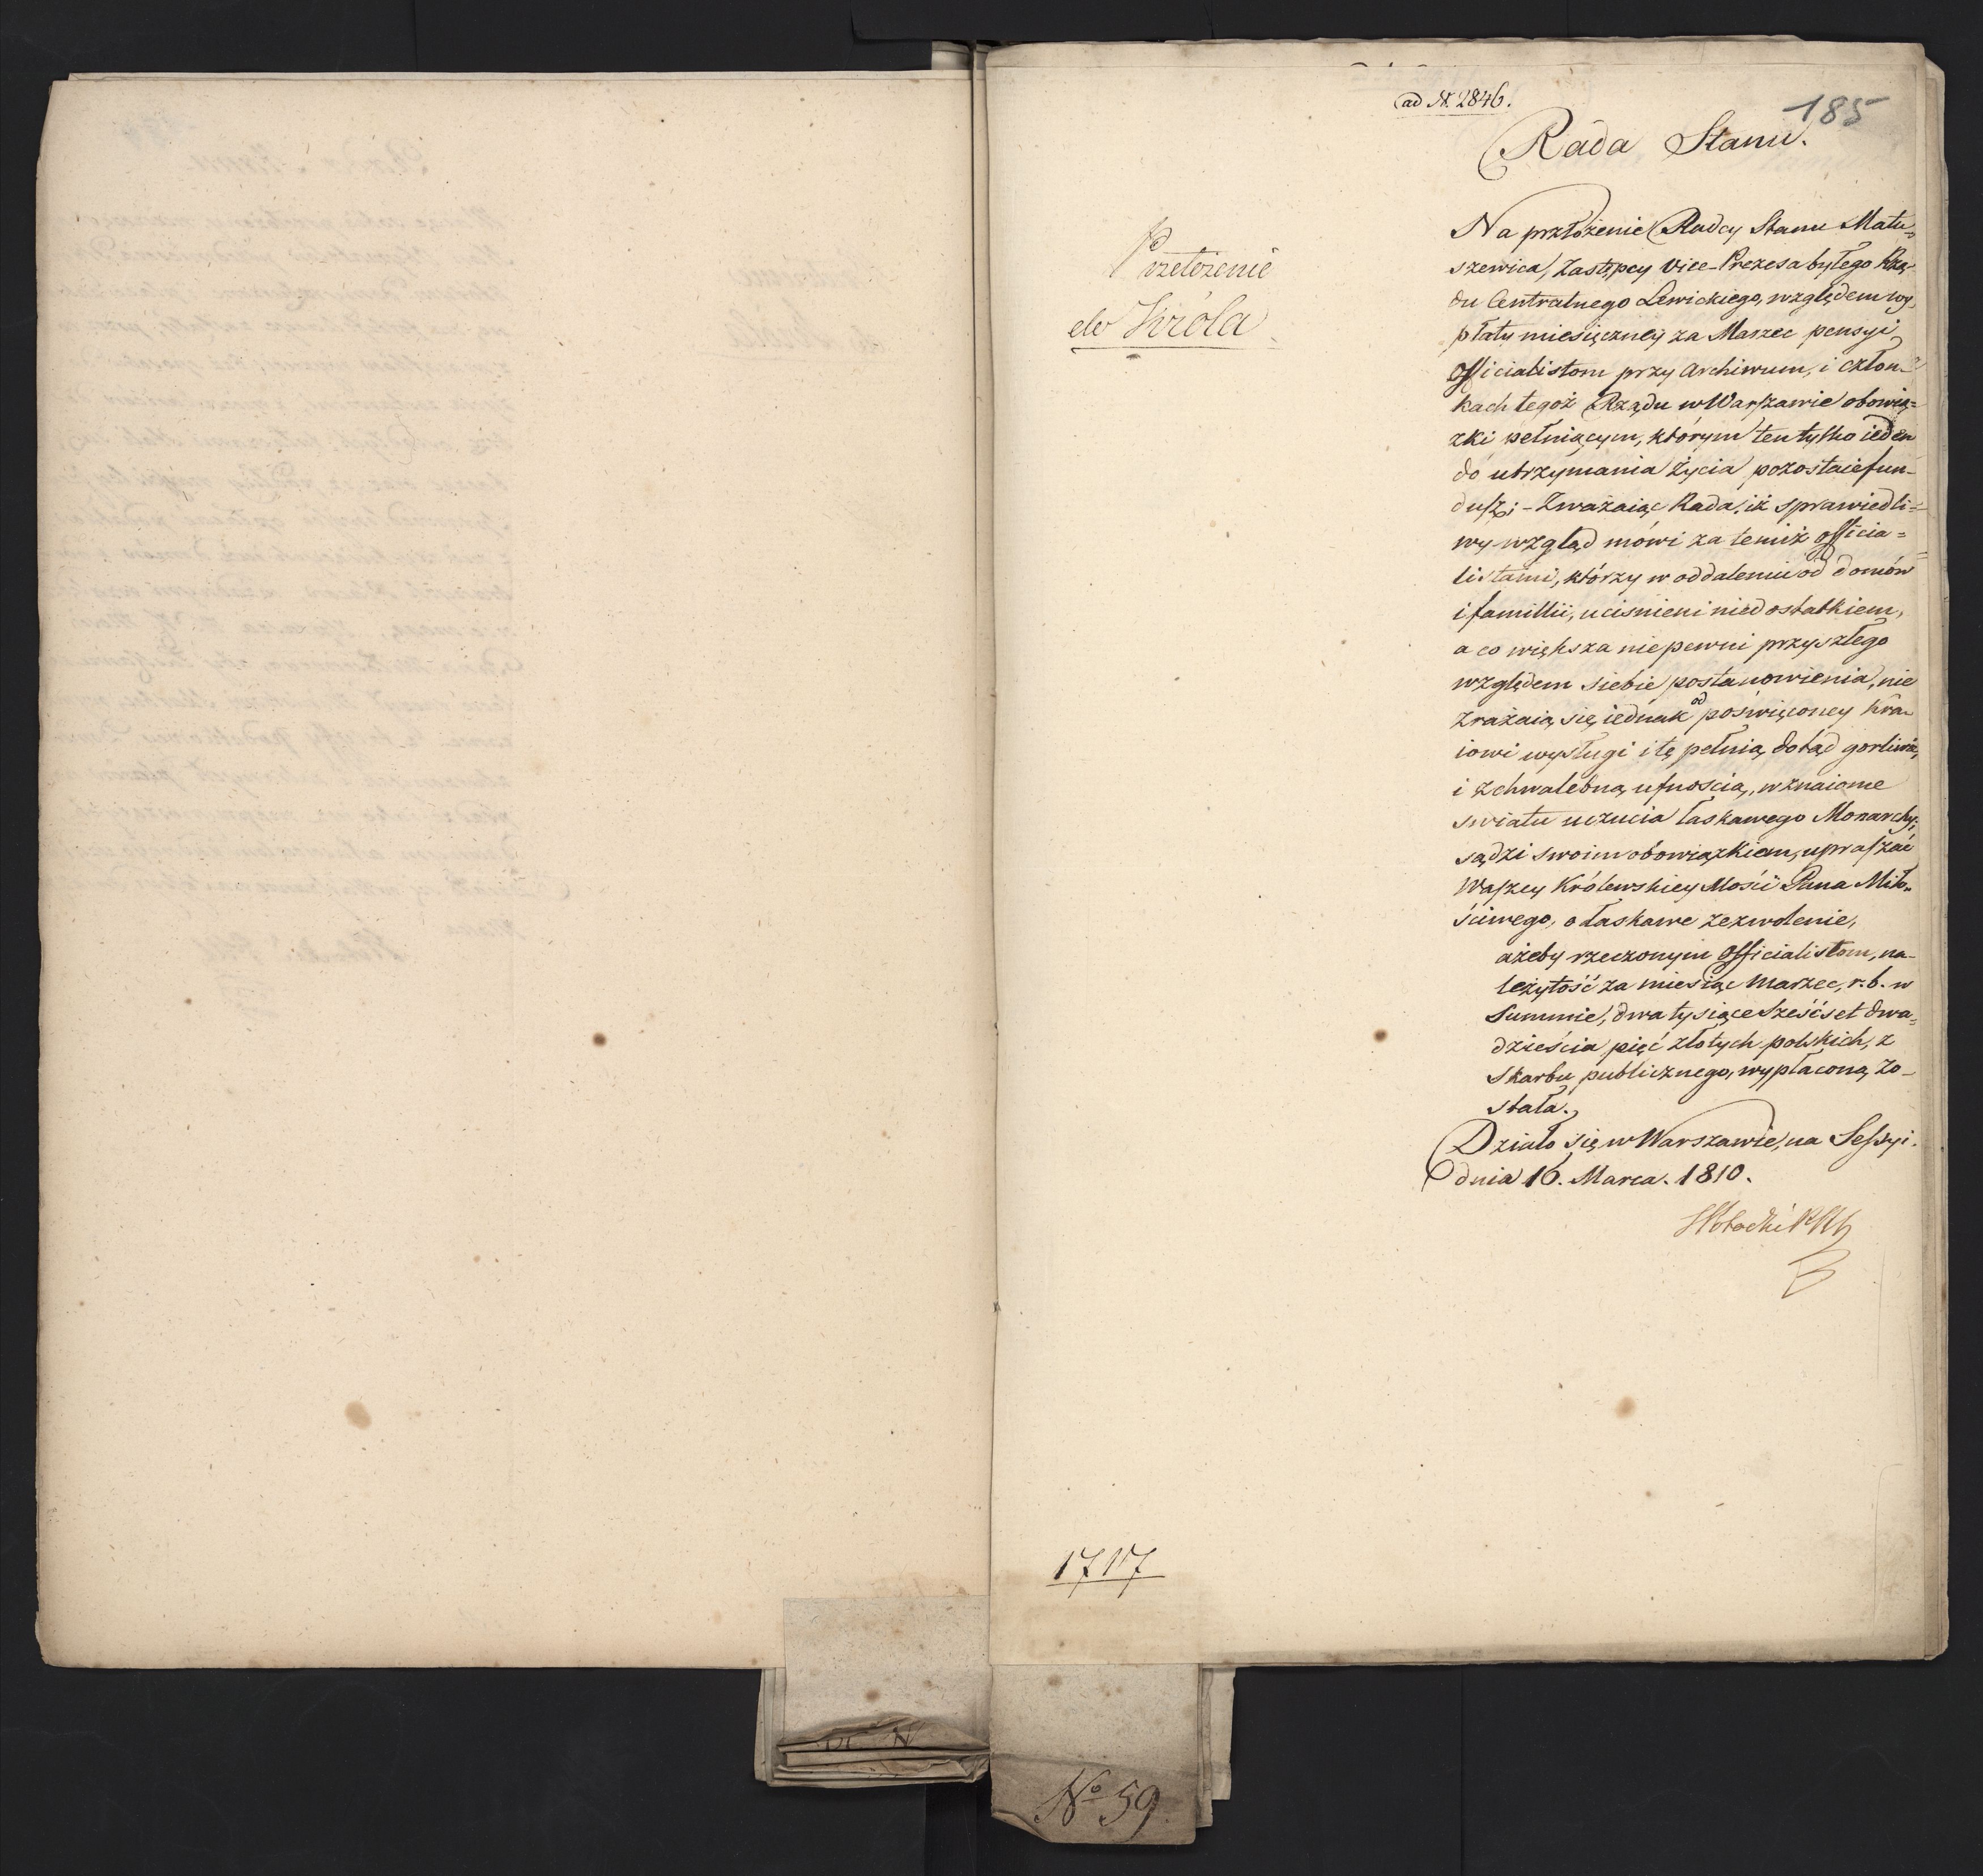 ad N. 2846.
185
Rada Stanu.
Przełożenie
do Króla
Na przłożenie Radcy Stanu Matu=
szewica, Zastępcy Vice-Prezesa byłego Rzą-
du Centralnego Lewickiego, względem wy-
płaty miesięczney za Marzec pensyi
Officialistom przy Archiwum, i człon=
kach tegoż Rządu w Warszawie obowią=
zki pełniącym, którym ten tylko ieden
do utrzymania życia pozostaie fun-
dusz; - Zważaiąc Rada, iż sprawiedli=
wy wzgląd mówi za temiż officia=
listami, którzy w oddaleniu od domów
i familii, uciśnieni niedostatkiem,
a co większa niepewni przyszłego
względem siebie postanowienia, nie
zrażaią się iednak od poświęconey kra-
iowi wysługi i tę pełnią dotąd gorliwie,
i z chwalebną ufnoscią, w znaiome
swiatu uczucia łaskawego Monarchy;
sądzi swoim obowiązkiem, upraszać
Waszey Królewskiey Mości Pana Miło-
ściwego, o łaskawe zezwolenie,
ażeby rzeczonym Officialistom, na-
leżytość za miesiąc Marzec, r. b. w
Summie, dwa tysiące sześćset dwa=
dzieścia pięć złotych polskich, z
Skarbu publicznego, wypłaconą zo-
stała.
Działo się w Warszawie, na Sessyi
dnia 16. Marca. 1810.
1717
No 59.